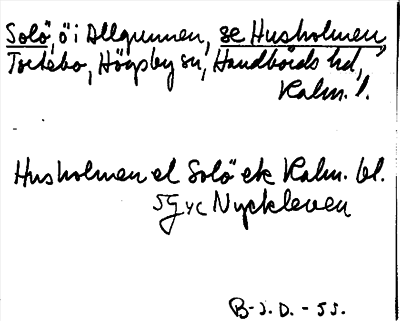 Solö, ö i Allgunnen, se Husholmen,
Torlebo, Högsby sn, Handbörds hd,
Kalm. l.
Husholmen el Solö ek Kalm. bl.
5G yc Nyckleven
B-J.D. - 55.